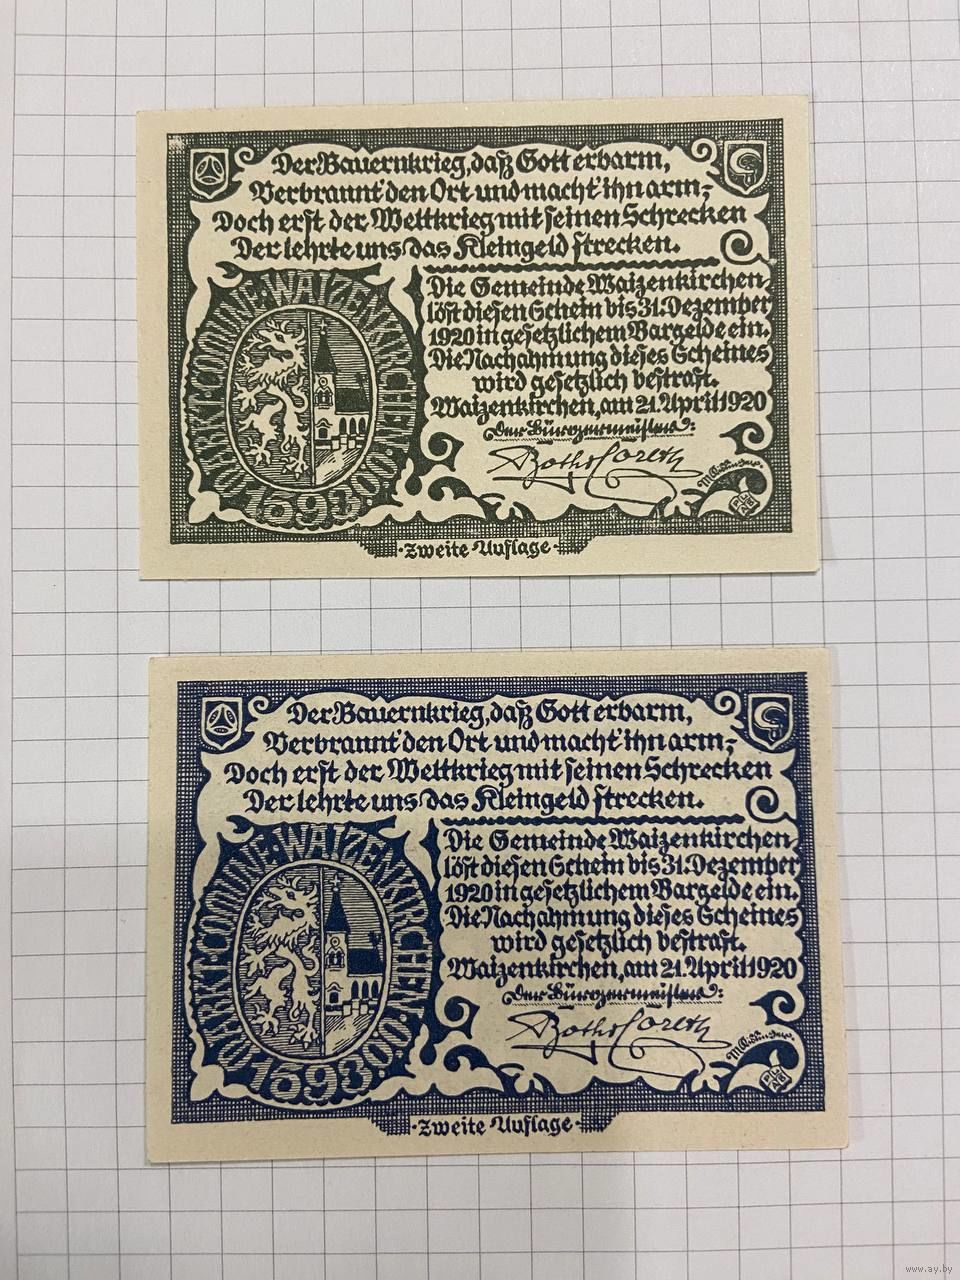 Der Bauernkrieg, daß Gott erbarm,
Verbrannt' den Ort und macht' ihn arm,-
Doch erst der Weltkrieg mit seinen Schrecken
Der lehrte uns das Kleingeld strecken.
MARKT-COMUNE·WAIZENKIRCHEN·
1593
Die Gemeinde Waizenkirchen,
löst diesen Schein bis 31. Dezember
1920 in gesetzlichem Bargelde ein.
Die Nachahmung dieses Scheines
wird gesetzlich bestraft.
Waizenkirchen, am 21. April 1920
Der Bürgermeister:
·Zweite Auflage·
Der Bauernkrieg, daß Gott erbarm,
Verbrannt' den Ort und macht' ihn arm,-
Doch erst der Weltkrieg mit seinen Schrecken
Der lehrte uns das Kleingeld strecken.
MARKT-COMUNE·WAIZENKIRCHEN·
1593
Die Gemeinde Waizenkirchen,
löst diesen Schein bis 31. Dezember
1920 in gesetzlichem Bargelde ein.
Die Nachahmung dieses Scheines
wird gesetzlich bestraft.
Waizenkirchen, am 21. April 1920
Der Bürgermeister:
·Zweite Auflage·
www.ay.by